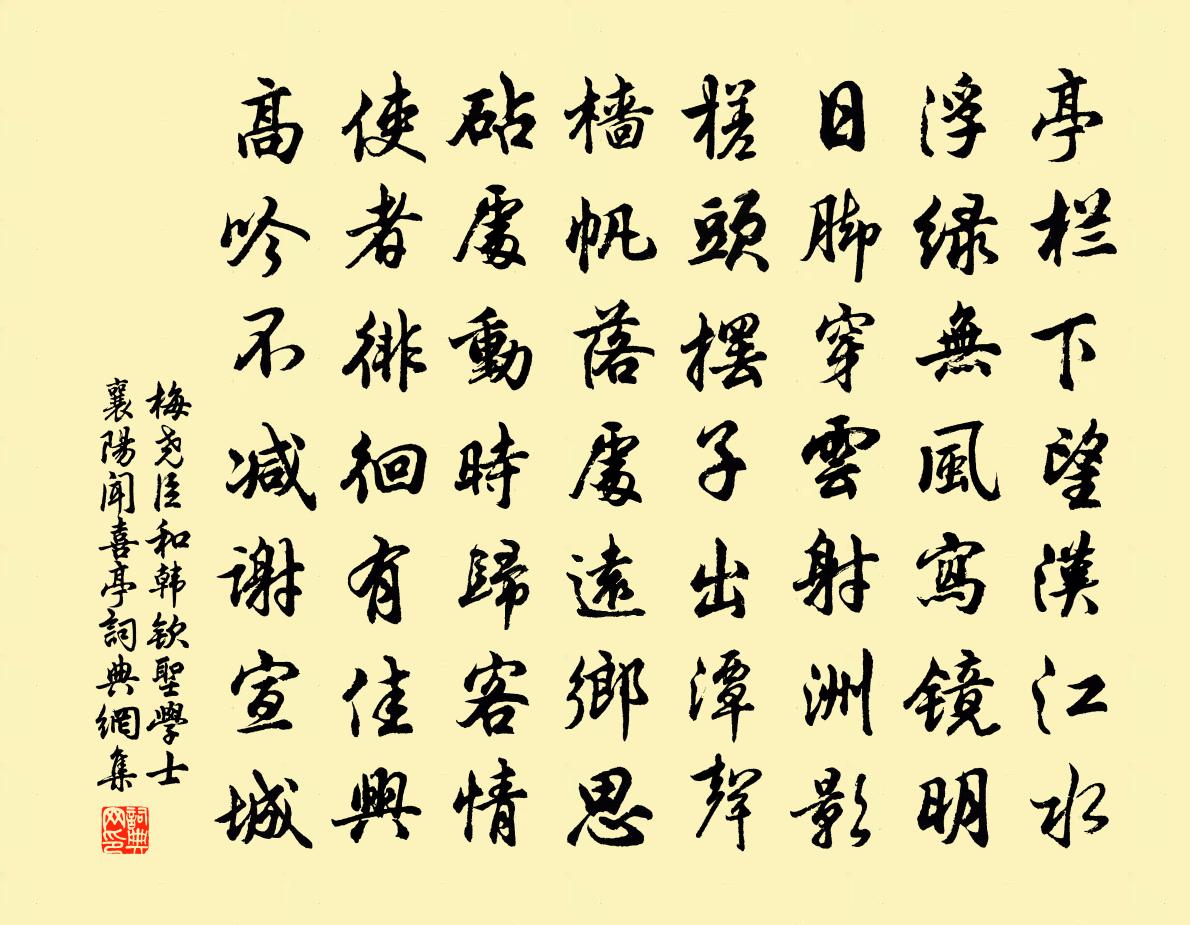 亭栏下望漢江水
浮绿無風寫镜明
日脚穿雲射洲影
槎頭擺子出潭聲
檣帆落處遠鄉思
砧處動時歸客情
使者徘徊有佳興
高吟不减謝宣城
梅尧臣和韩钦聖學士
襄陽闻喜亭詞典網集
詞典网印